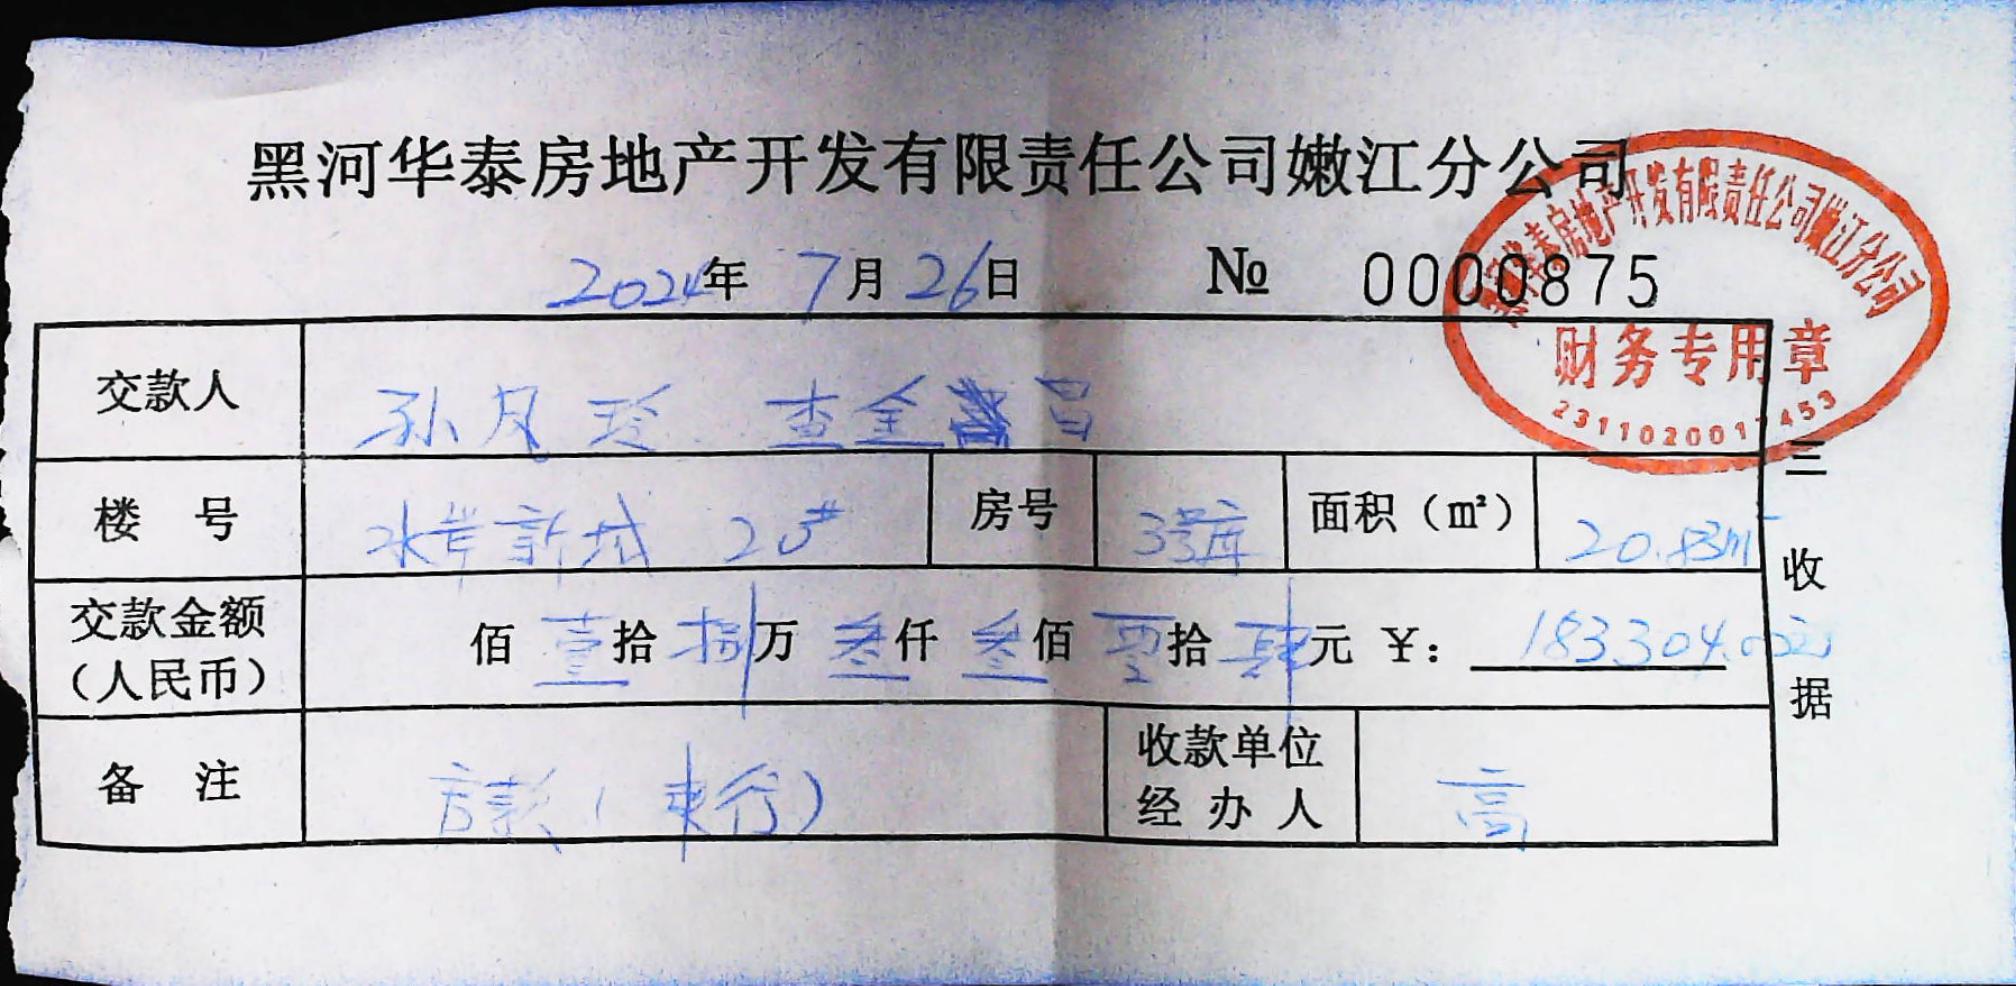 黑河华泰房地产开发有限责任公司嫩江分公司
黑河华泰房地产开发有限责任公司嫩江分公司
2024年 7月26日 № 0000875
财务专用章
2311020017453
交款人 孙凤珍 查全昌
楼 号 水岸新城 20# 房号 3号库 面积（㎡） 20.83m
交款金额（人民币） 佰 壹拾 捌万 叁仟 叁佰 零拾 肆元 ￥：183304.00元
备 注 房款（ 行） 收款单位经办人 高
三 收 据